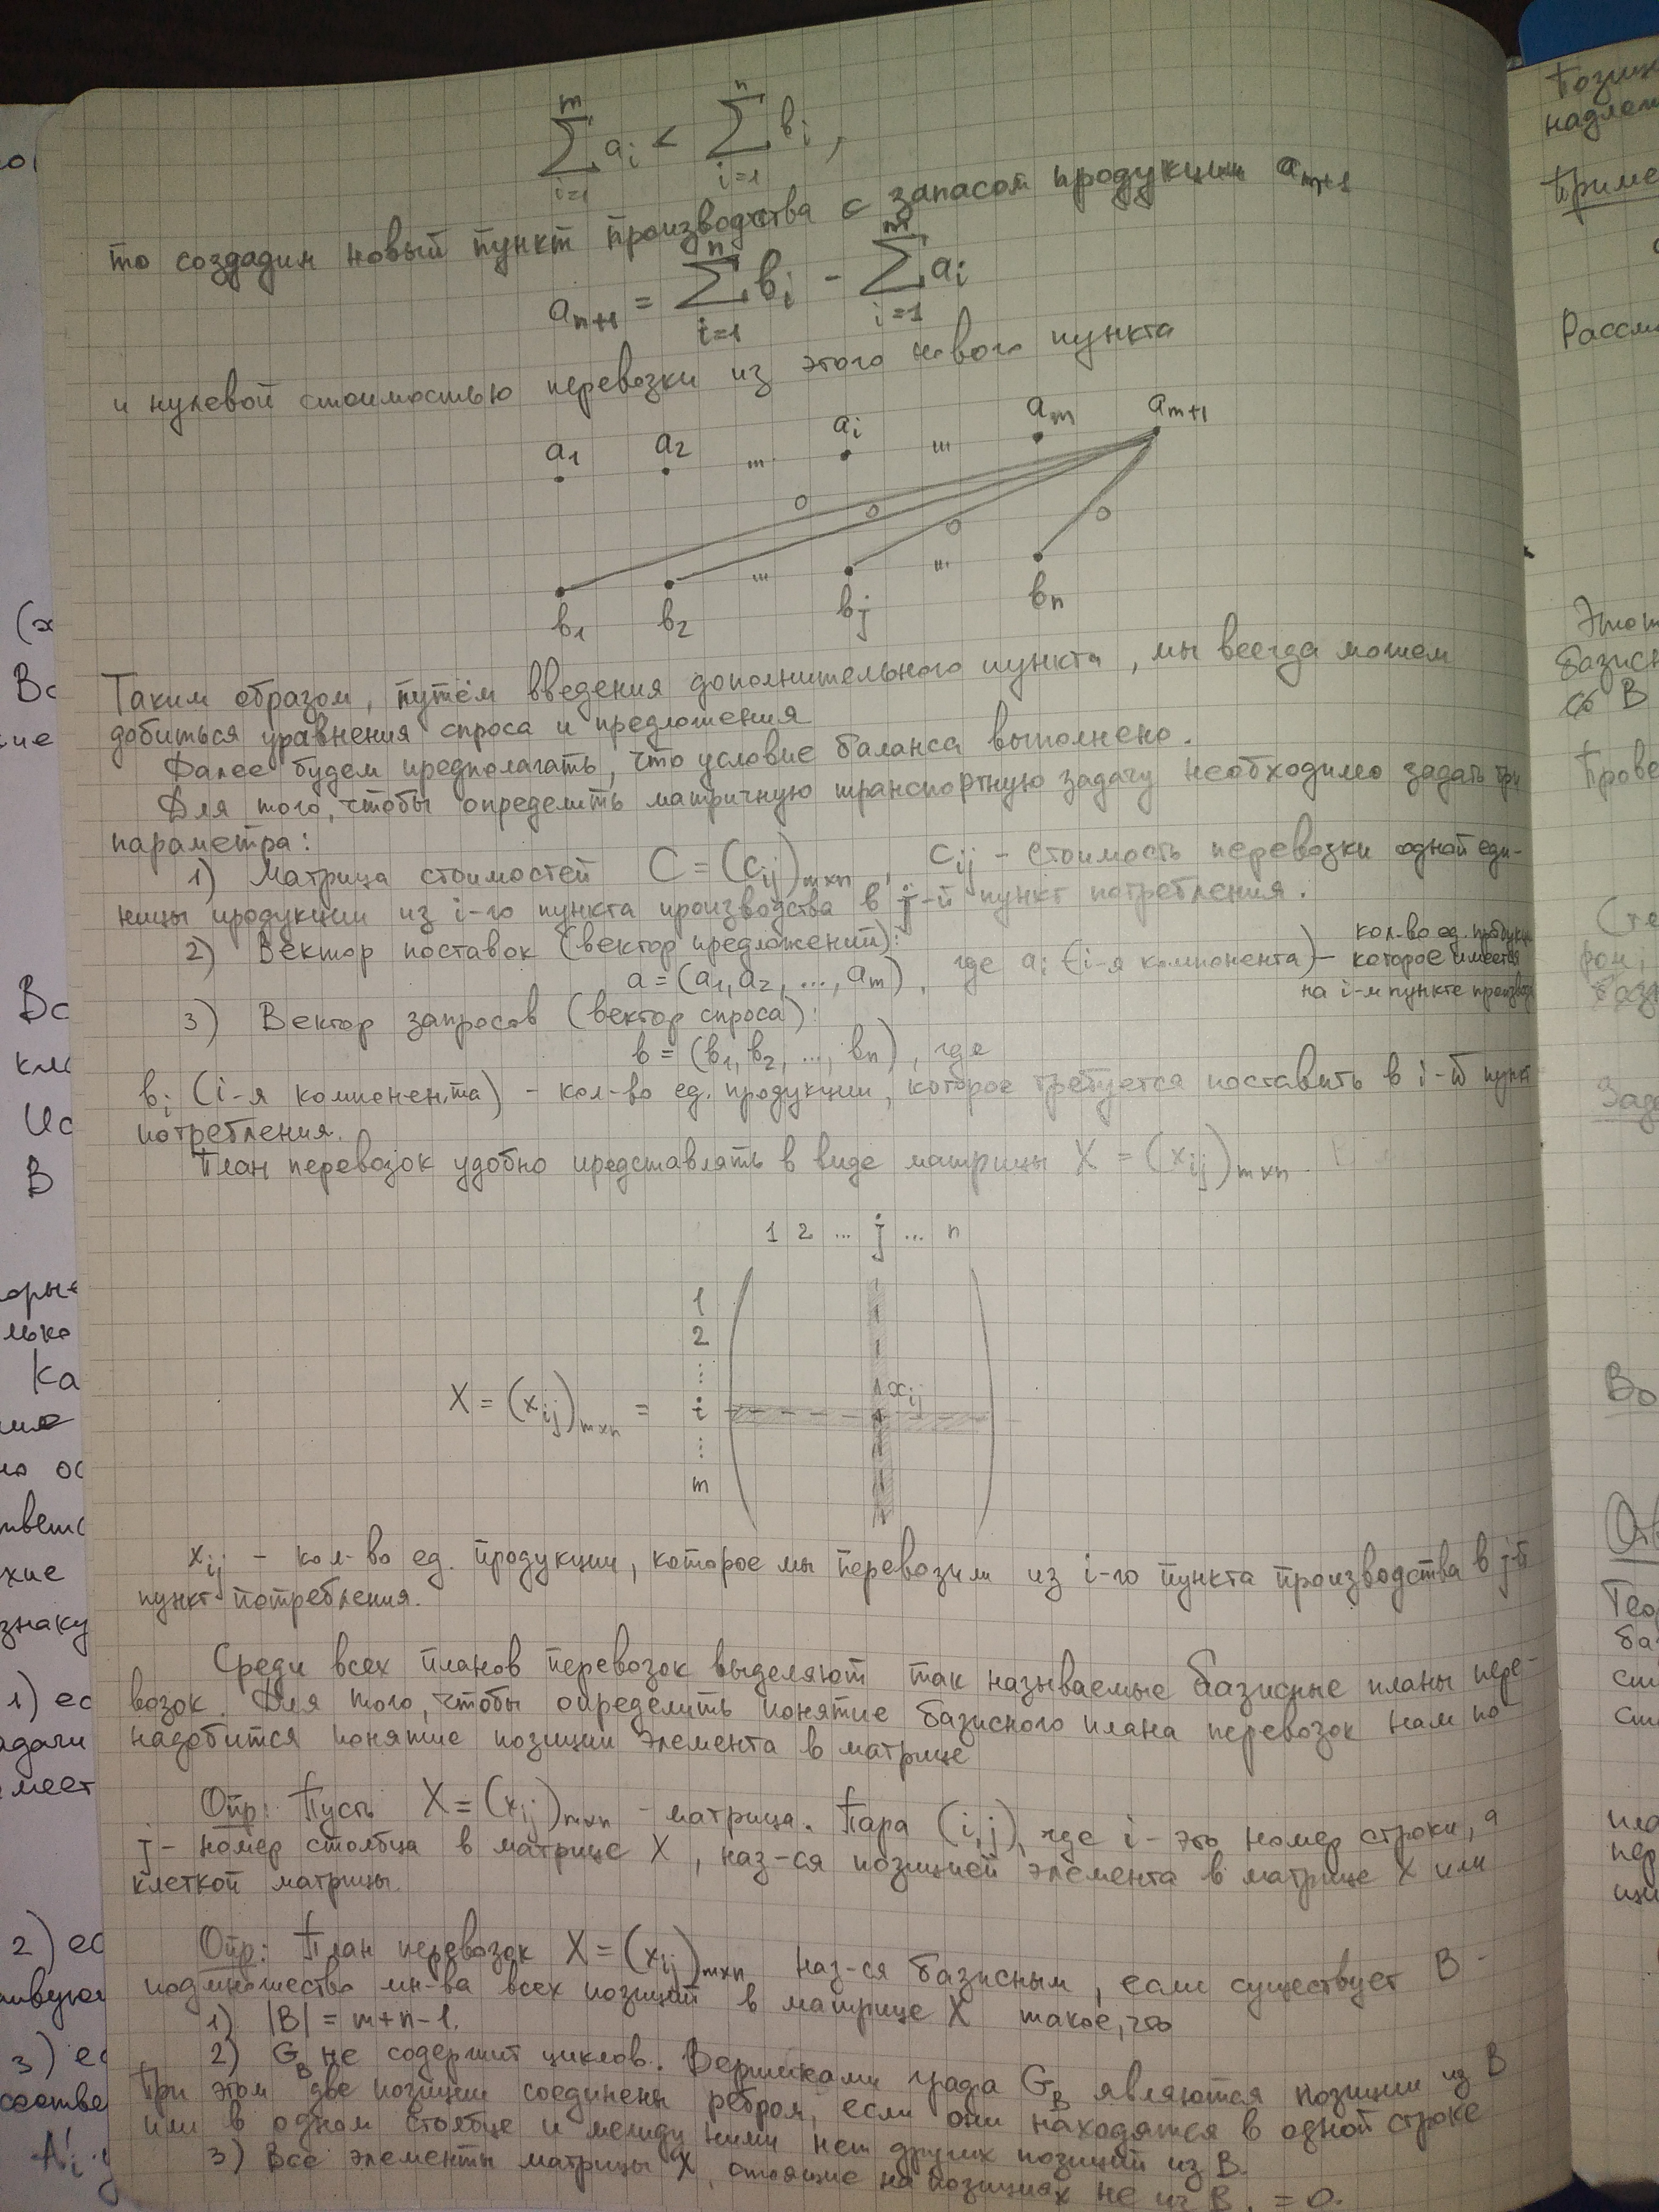 ∑_{i=1}^{m} a_i < ∑_{i=1}^{n} b_i ,
то создадим новый пункт производства с запасом продукции a_{m+1}
a_{n+1} = ∑_{i=1}^{n} b_i - ∑_{i=1}^{m} a_i
и нулевой стоимостью перевозки из этого нового пункта
a_1 a_2 ... a_i ... a_m a_{m+1}
0 0 0 0
b_1 b_2 ... b_j ... b_n
Таким образом, путём введения дополнительного пункта, мы всегда можем
добиться уравнения спроса и предложения
Далее будем предполагать, что условие баланса выполнено.
Для того, чтобы определить матричную транспортную задачу необходимо задать три
параметра:
1) Матрица стоимостей C = (c_{ij})_{m×n} , c_{ij} - стоимость перевозки одной еди-
ницы продукции из i-го пункта производства в j-й пункт потребления.
2) Вектор поставок (вектор предложений):
a = (a_1, a_2, ..., a_m) , где a_i (i-я компонента) - кол-во ед. продукции
которое имеется
на i-м пункте производ
3) Вектор запросов (вектор спроса):
b = (b_1, b_2, ..., b_n) , где
b_i (i-я компонента) - кол-во ед. продукции, которое требуется поставить в i-й пункт
потребления.
План перевозок удобно представлять в виде матрицы X = (x_{ij})_{m×n}
1 2 ... j ... n
1
2
⋮
X = (x_{ij})_{m×n} = i x_{ij}
⋮
m
x_{ij} - кол-во ед. продукции, которое мы перевозим из i-го пункта производства в j-й
пункт потребления.
Среди всех планов перевозок выделяют так называемые базисные планы пере-
возок. Для того, чтобы определить понятие базисного плана перевозок нам по-
надобится понятие позиции элемента в матрице
Опр: Пусть X = (x_{ij})_{m×n} - матрица. Пара (i,j), где i - это номер строки, а
j - номер столбца в матрице X, наз-ся позицией элемента в матрице X или
клеткой матрицы.
Опр: План перевозок X = (x_{ij})_{m×n} наз-ся базисным, если существует B -
подмножество мн-ва всех позиций в матрице X такое, что
1) |B| = m+n-1.
2) G_B не содержит циклов. Вершинами графа G_B являются позиции из B
При этом две позиции соединены ребром, если они находятся в одной строке
или в одном столбце и между ними нет других позиций из B.
3) Все элементы матрицы X, стоящие на позициях не из B, = 0.